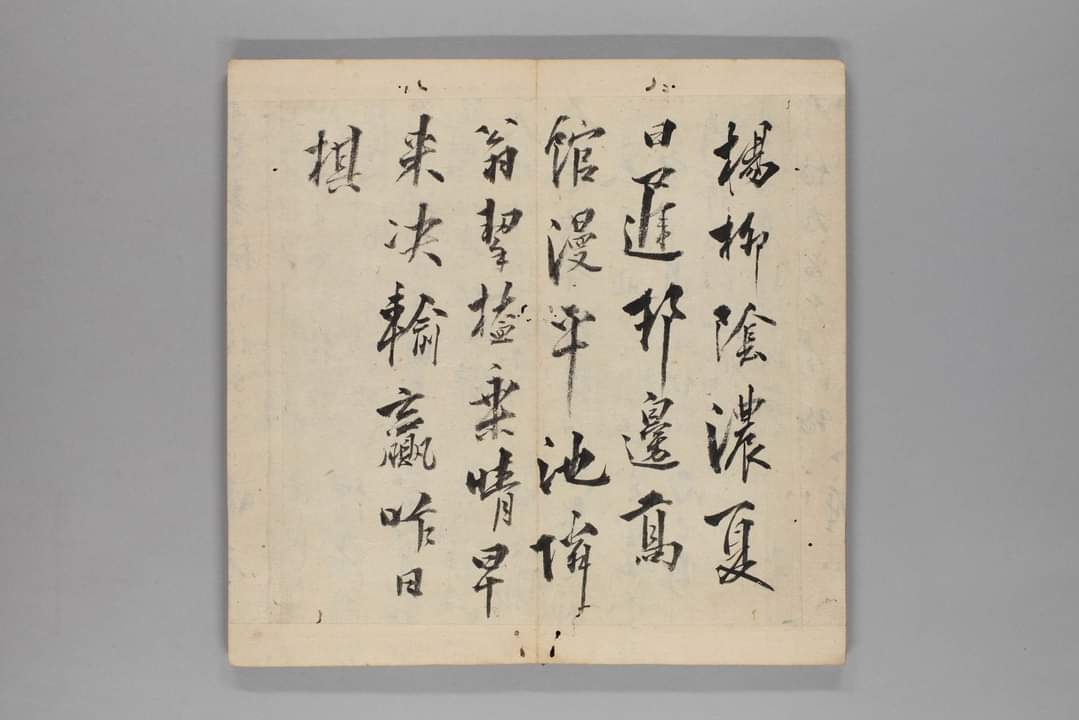 楊柳陰濃夏
日遲邨邊高
館漫平池鄰
翁挈榼乘晴早
来决輸嬴昨日
棋